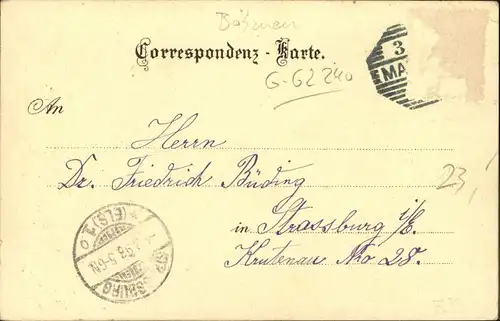 Böhmen
Correspondenz-Karte.
G-G2240
3
MA
An
Herrn
Dr. Friedrich Büding
in Strassburg i/E.
Krutenau Nro 28.
23,
(ELS) 1
5-6N